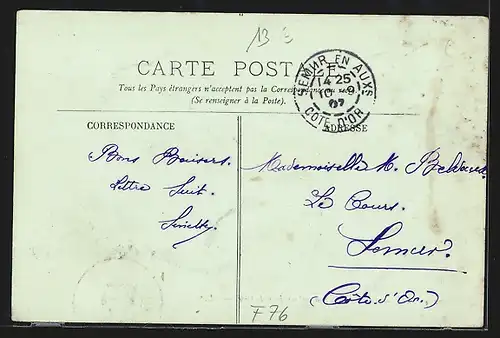 13
CARTE POSTALE
Tous les Pays étrangers n'acceptent pas la Correspondance au
(Se renseigner à la Poste).
SEMUR EN AUXS
14 25
10
07
COTE D'OR
CORRESPONDANCE
ADRESSE
Bons Baisers.
Lettre Suit.
Mademoiselle M.
Le Cours.
Semur
(Côte d'Or)
F76